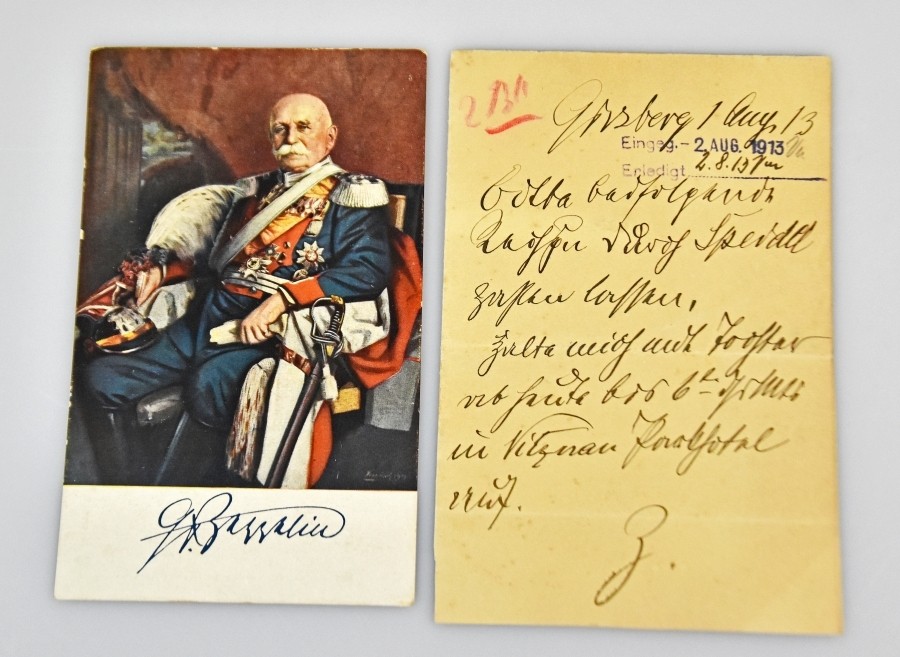 Gf. Zeppelin
2
Girsberg 1 Aug 13
Eingeg. - 2. AUG. 1913
Erledigt 2.8.13
Bitte beifolgende
durch Speidel
zahlen lassen.
Halte mich mit Tochter
ab heute bis 6ten
in Vitznau Parkhotel
auf.
Z.